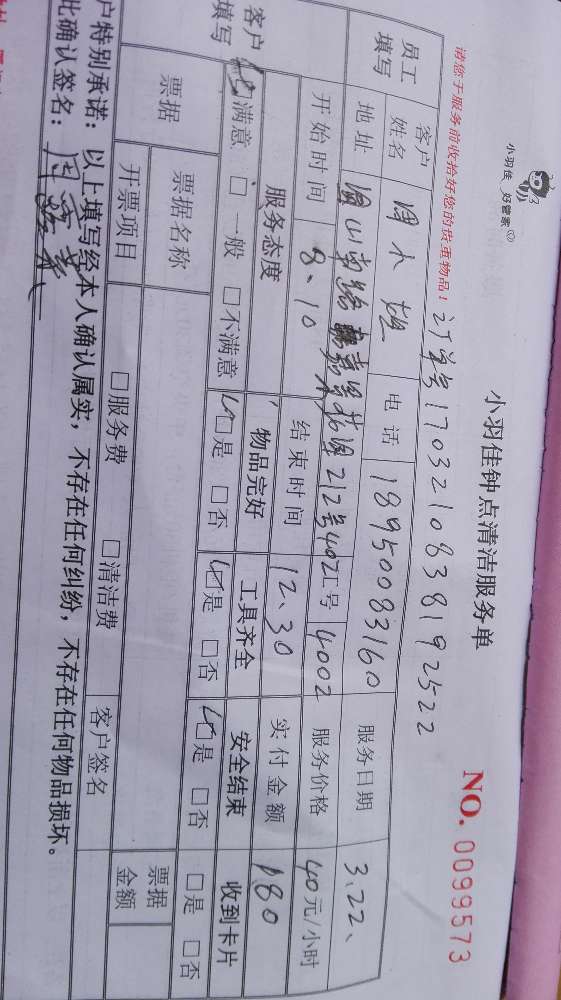 小羽佳 好管家
小羽佳钟点清洁服务单
NO. 0099573
请您于服务前收拾好您的贵重物品！
订单号1703210838192522
员工填写
客户姓名 周小姐 电话 18950083160 服务日期 3.22、
地址 212号402 工号 4002 服务价格 40元/小时
开始时间 8、10 结束时间 12、30 实付金额 180
客户填写
服务态度 物品完好 工具齐全 安全结束 收到卡片
☑满意 □一般 □不满意 ☑是 □否 ☑是 □否 ☑是 □否 □是 □否
票据
票据名称 票据金额
开票项目 □服务费 □清洁费 客户签名
户特别承诺：以上填写经本人确认属实，不存在任何纠纷，不存在任何物品损坏。
此确认签名：